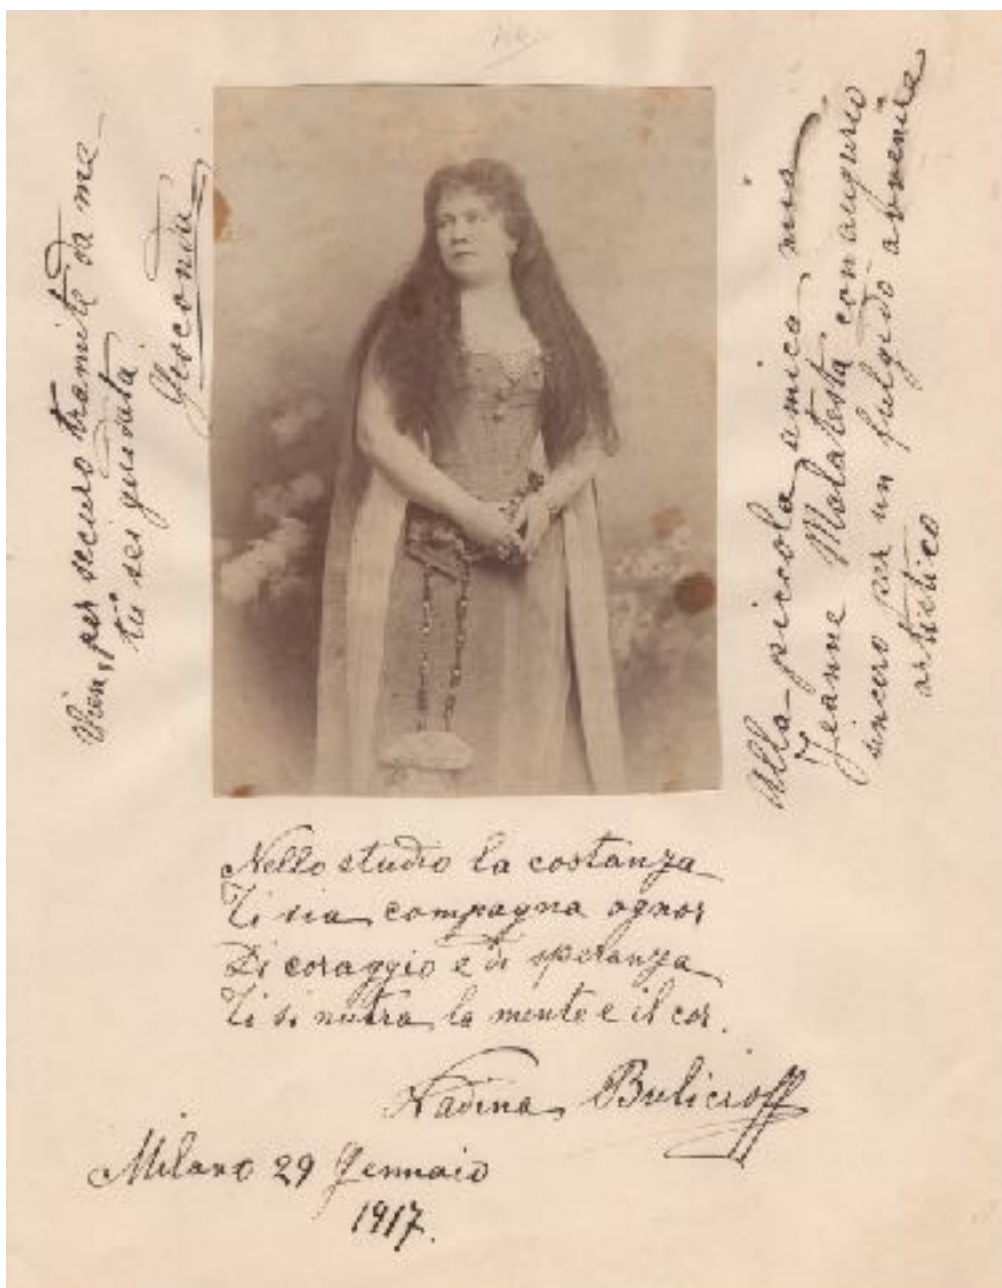 Vien, per securo tramite da me
tu sei guidata
Gioconda
Alla piccola amica mia
Jeanne Malatesta con augurio
sincero per un fulgido avvenire
artistico
Nello studio la costanza
Ti sia compagna ognor
Di coraggio e di speranza
Ti si nutra la mente e il cor.
Nadina Bulicioff
Milano 29 Gennaio
1917.